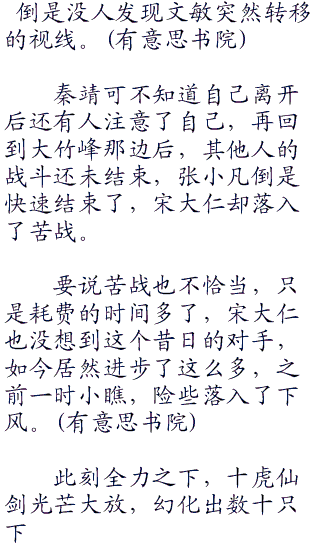 倒是没人发现文敏突然转移
的视线。(有意思书院)
秦靖可不知道自己离开
后还有人注意了自己，再回
到大竹峰那边后，其他人的
战斗还未结束，张小凡倒是
快速结束了，宋大仁却落入
了苦战。
要说苦战也不恰当，只
是耗费的时间多了，宋大仁
也没想到这个昔日的对手，
如今居然进步了这么多，之
前一时小瞧，险些落入了下
风。(有意思书院)
此刻全力之下，十虎仙
剑光芒大放，幻化出数十只
下